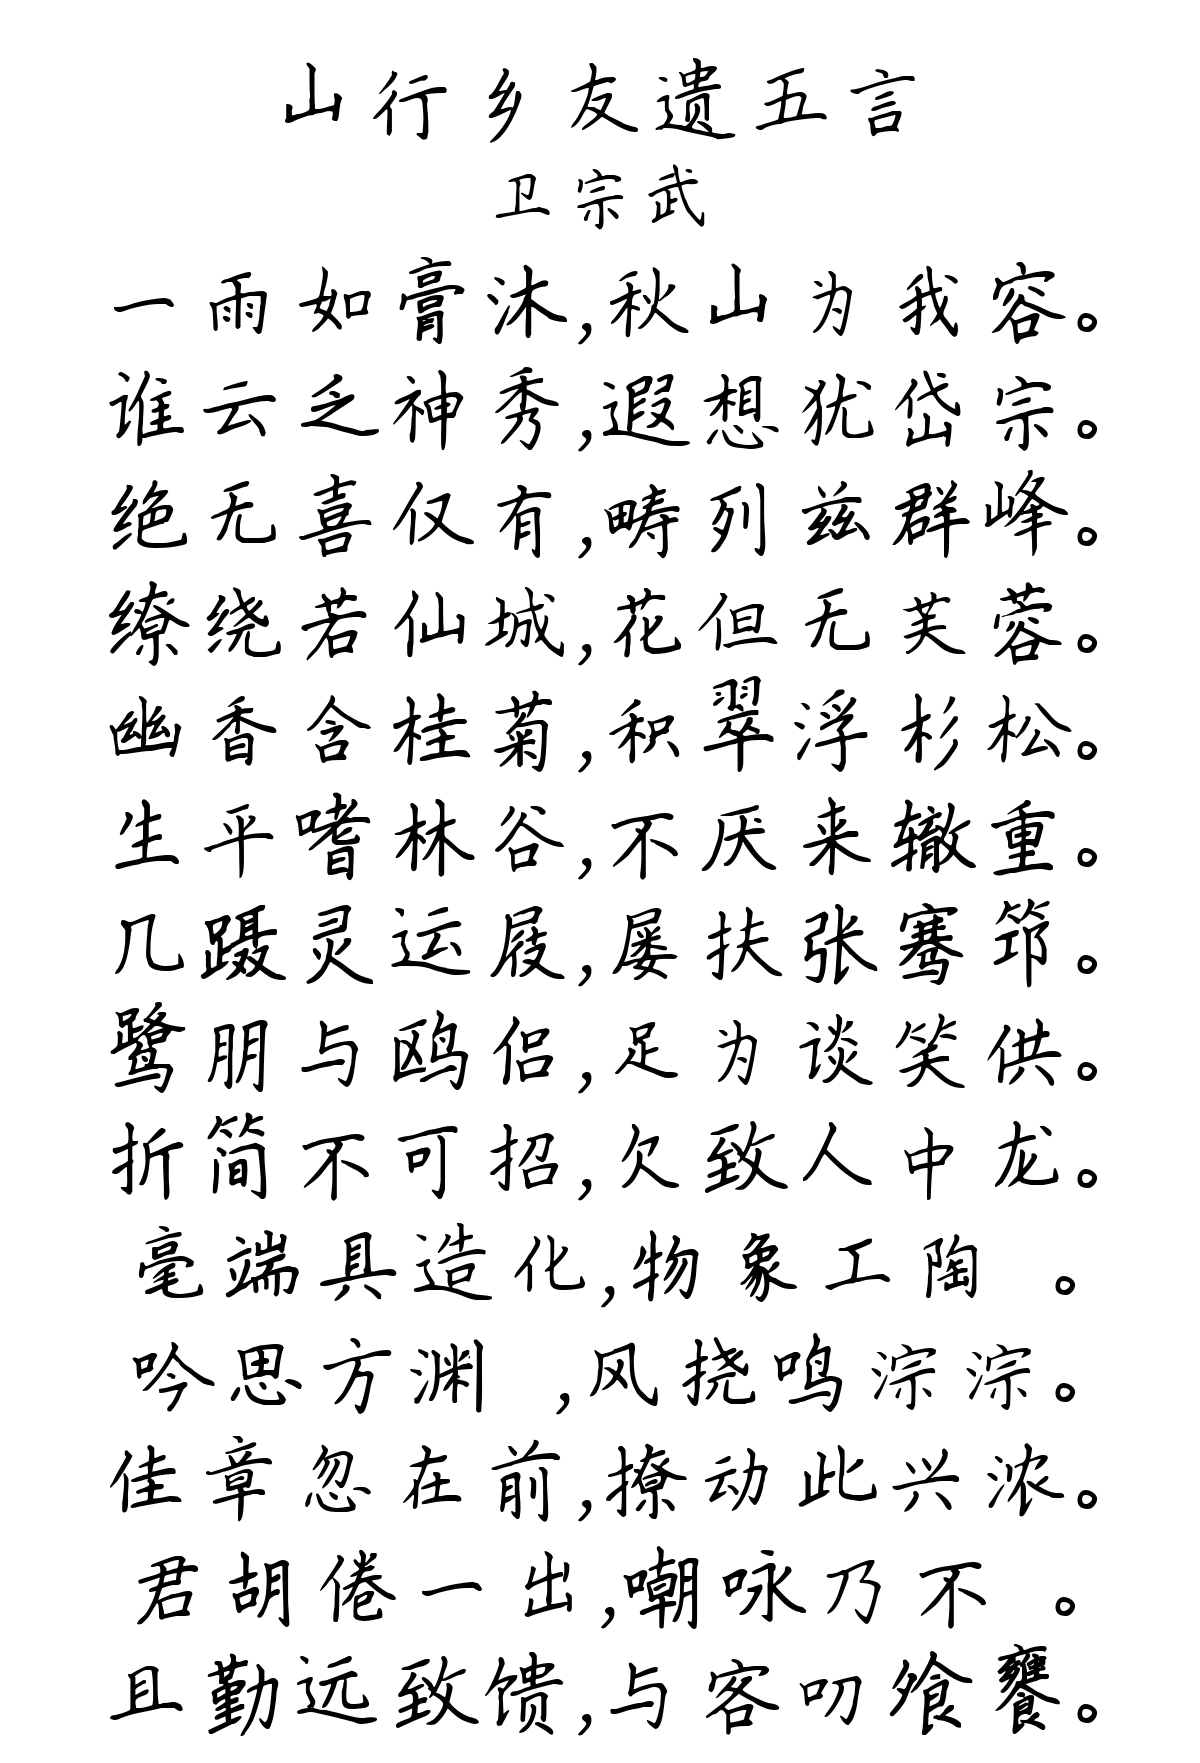 山行乡友遗五言
卫宗武
一雨如膏沐,秋山为我容。
谁云乏神秀,遐想犹岱宗。
绝无喜仅有,畴列兹群峰。
缭绕若仙城,花但无芙蓉。
幽香含桂菊,积翠浮杉松。
生平嗜林谷,不厌来辙重。
几蹑灵运屐,屡扶张骞筇。
鹭朋与鸥侣,足为谈笑供。
折简不可招,欠致人中龙。
毫端具造化,物象工陶 。
吟思方渊 ,风挠鸣淙淙。
佳章忽在前,撩动此兴浓。
君胡倦一出,嘲咏乃不 。
且勤远致馈,与客叨飧饔。